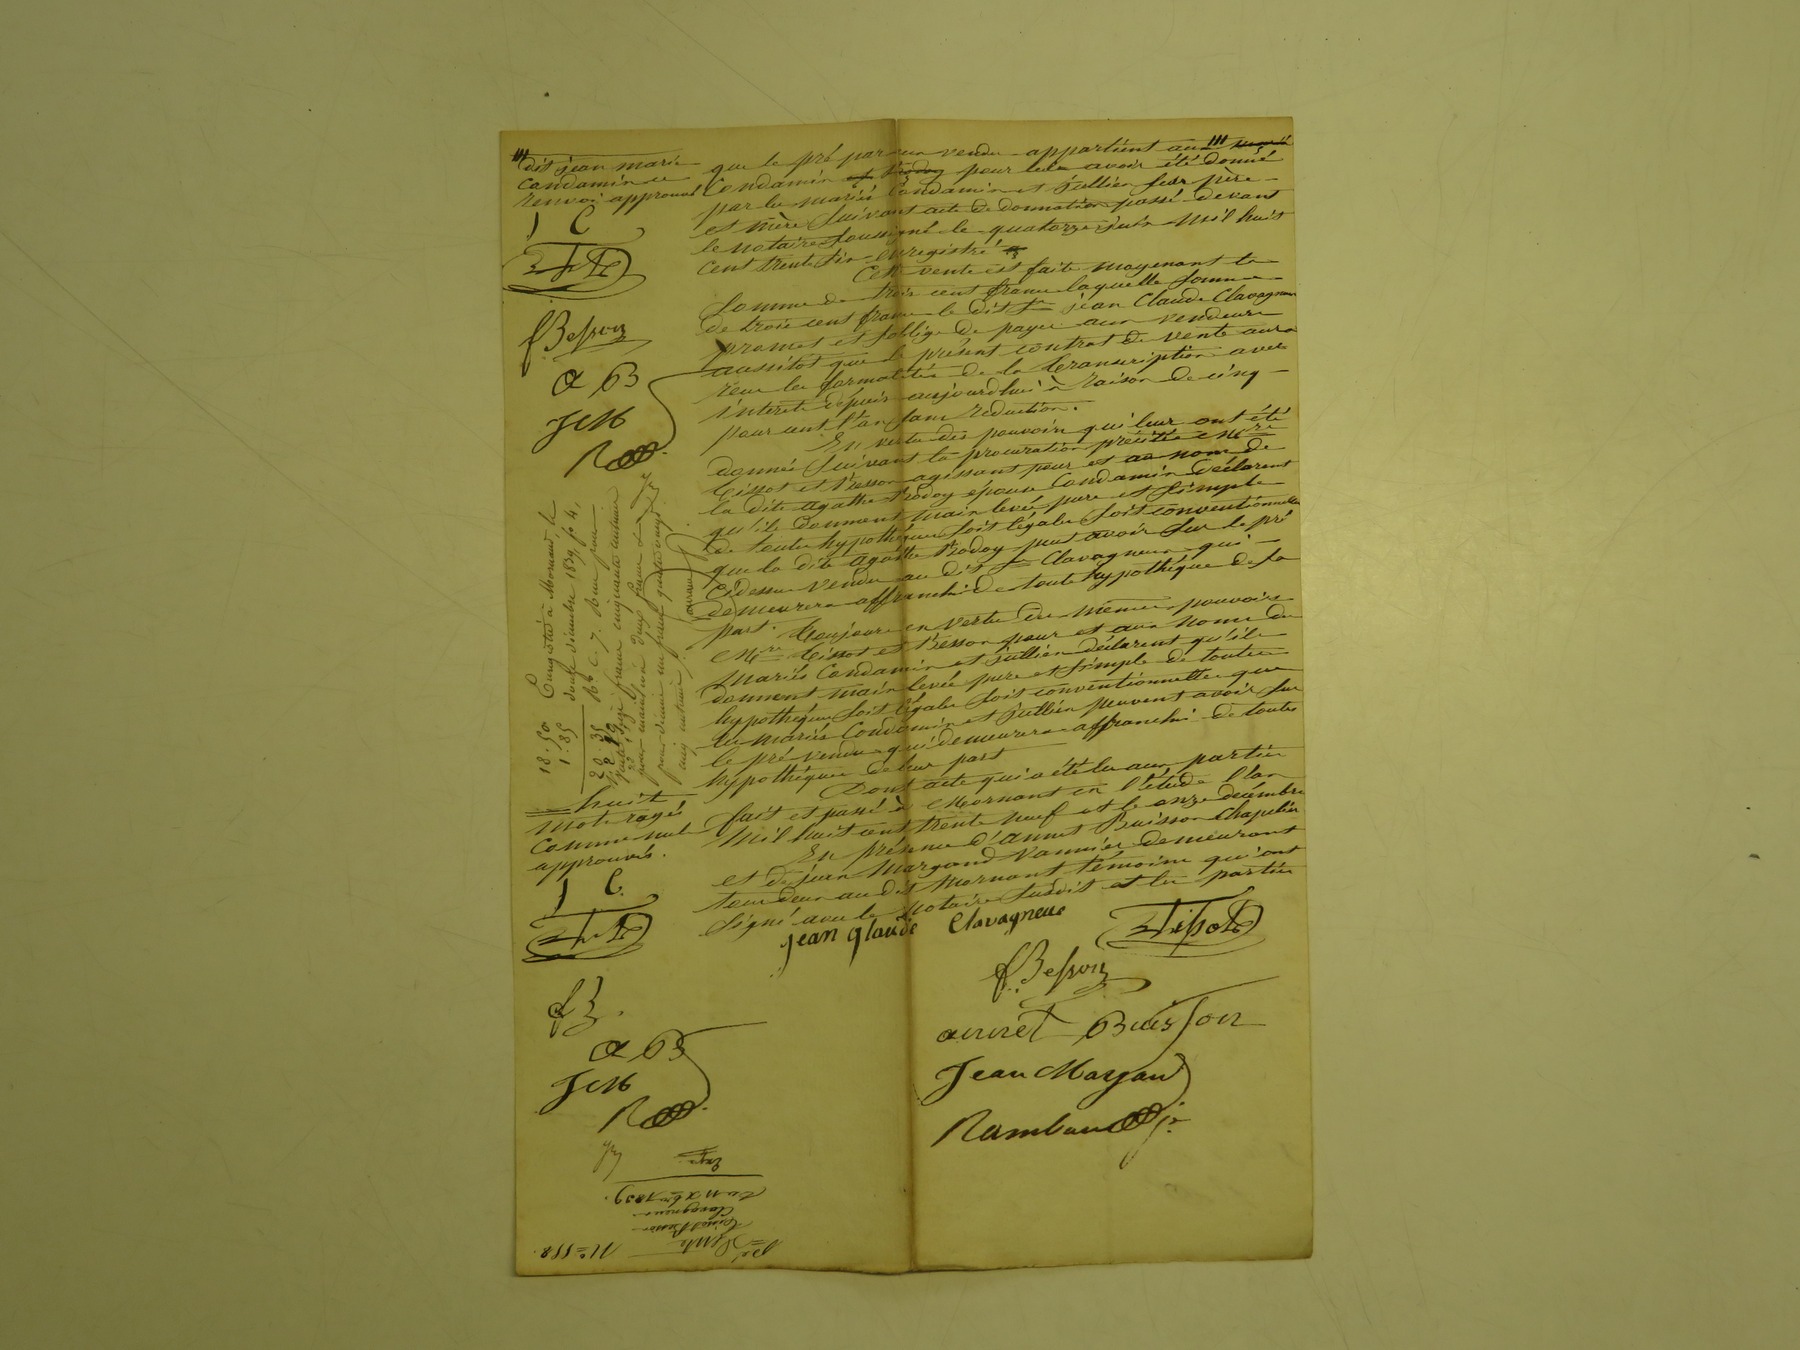 dit jean marie
Condamin ce
renvoi approuvé
J C
f Besson
a B
J M
R
que le pré par eux vendu appartient aux
Condamin et Bodoy pour leur avoir été donné
par les mariés Condamin et Jullien leur père
et mère suivant acte de donnation passé devant
le notaire soussigné le quatorze juin mil huit
cent trente six enregistré
Cette vente est faite moyenant la
somme de trois cent francs laquelle somme
de trois cent francs le dit Sr jean Claude Clavagneux
promet et s'oblige de payer aux vendeurs
aussitot que le présent contrat de vente aura
reçu les formalités de la transcription avec
intérêts depuis aujourdhui à raison de cinq
pour cent l'an sans réduction.
En vertu des pouvoirs qui leur ont été
donnés suivant la procuration précitée Mrs
Tissot et Besson agissant pour et au nom de
la dite agathe Bodoy épouse Condamin déclarent
qu'ils donnent main levée pure et simple
de toutes hypothèques soit légales soit conventionnelles
que la dite agathe Bodoy peut avoir sur le pré
cidessus vendu au dit Sr Clavagneux qui
demeurera affranchi de toute hypothèque de sa
part.
Toujours en vertu des mêmes pouvoirs
Mrs Tissot et Besson pour et aux noms des
mariés Condamin et Jullien déclarent qu'ils
donnent main levée pure et simple de toutes
hypothèques soit légales soit conventionnelles que
les mariés Condamin et Jullien peuvent avoir sur
le pré vendu qui demeurera affranchi de toutes
hypothèques de leur part
Dont acte qui a été lu aux parties
fait et passé à Mornant en l'étude l'an
mil huit cent trente neuf et le onze décembre
En présence d'annet Buisson Chapelier
et de jean Margand Vannier demeurant
tous deux au dit Mornant témoins qui ont
signé avec le notaire susdit et les parties
Enregistré à Mornant le
douze décembre 1839, fo 4,
Ro C. 7. Reçu pour
18.50
1.85
20.35
huit
mots rayés
comme nuls
approuvés.
J C.
f B.
a B
J M
R
jean glaude Clavagneue
Tissot
f Besson
annet Buisson
Jean Margand
Rambaud jne
No 558.
Vente
Tissot Besson
Clavagneux
Du 11 Xbre 1839.